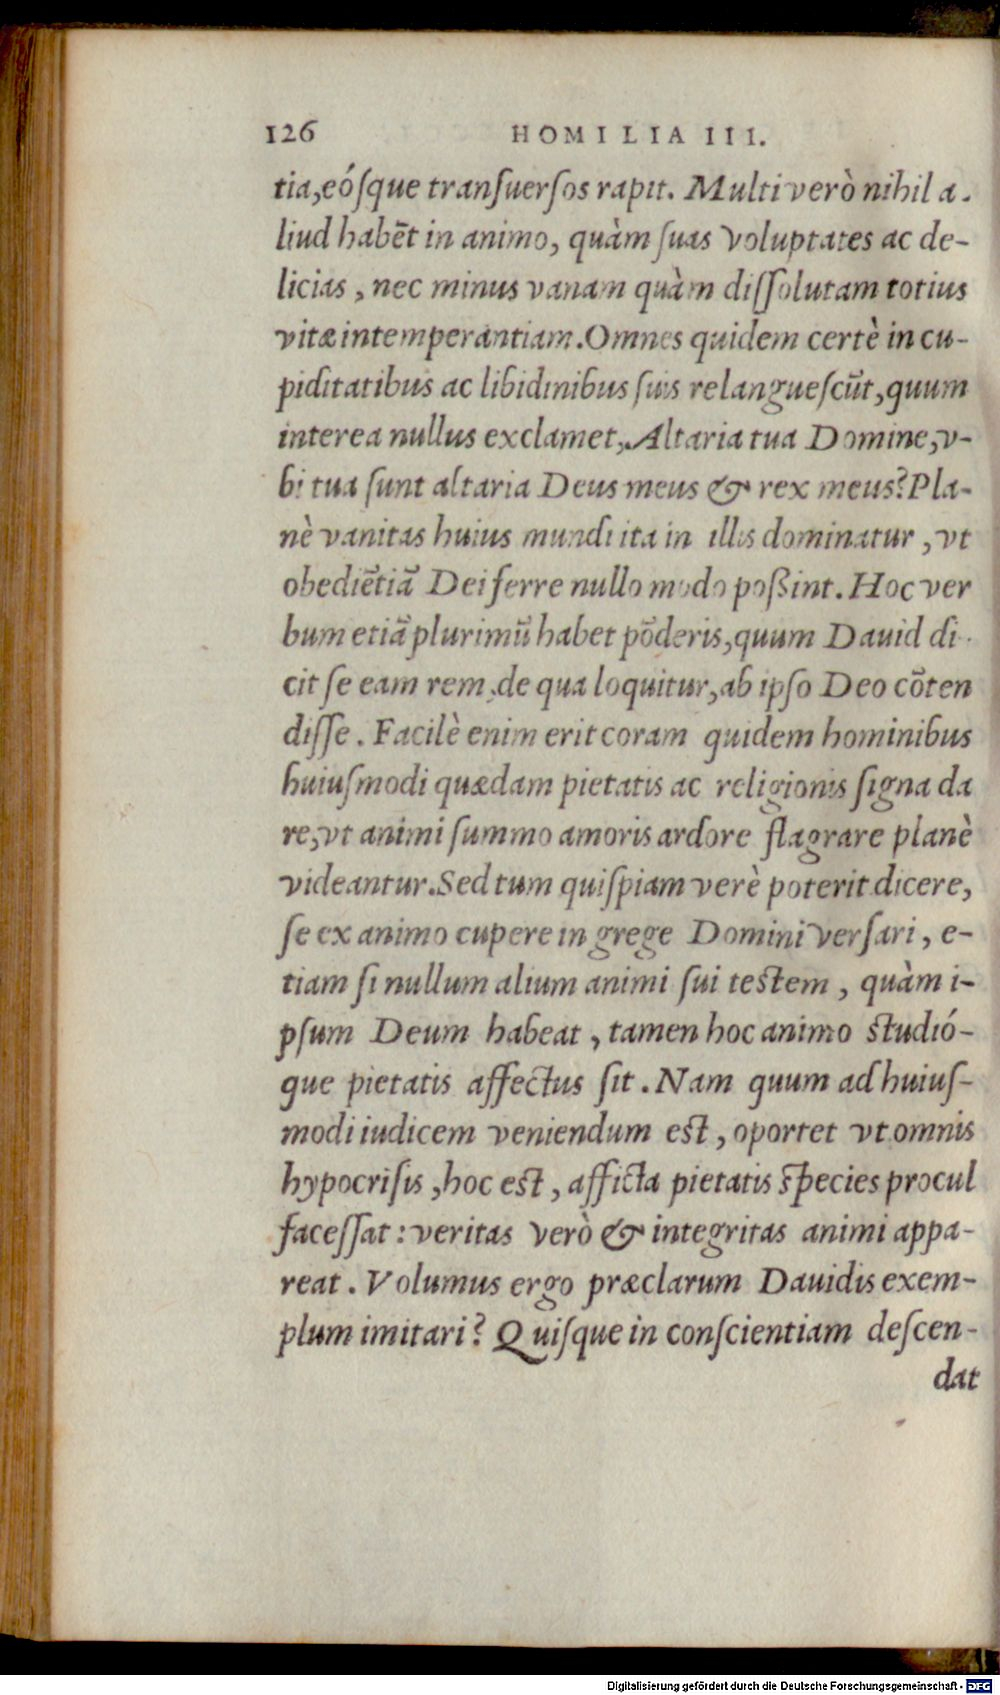 126 HOMILIA III.
tia, eósque transuersos rapit. Multi verò nihil a-
liud habēt in animo, quàm suas voluptates ac de-
licias, nec minus vanam quàm dissolutam totius
vitæ intemperantiam. Omnes quidem certè in cu-
piditatibus ac libidinibus suis relanguescūt, quum
interea nullus exclamet, Altaria tua Domine, v-
bi tua sunt altaria Deus meus & rex meus? Pla-
nè vanitas huius mundi ita in illis dominatur, vt
obediētiā Dei ferre nullo modo poßint. Hoc ver
bum etiā plurimū habet pōderis, quum Dauid di-
cit se eam rem, de qua loquitur, ab ipso Deo cōten
disse. Facilè enim erit coram quidem hominibus
huiusmodi quædam pietatis ac religionis signa da
re, vt animi summo amoris ardore flagrare planè
videantur. Sed tum quispiam verè poterit dicere,
se ex animo cupere in grege Domini versari, e-
tiam si nullum alium animi sui testem, quàm i-
psum Deum habeat, tamen hoc animo studió-
que pietatis affectus sit. Nam quum ad huius-
modi iudicem veniendum est, oportet vt omnis
hypocrisis, hoc est, afficta pietatis species procul
facessat: veritas verò & integritas animi appa-
reat. Volumus ergo præclarum Dauidis exem-
plum imitari? Quisque in conscientiam descen-
dat
Digitalisierung gefördert durch die Deutsche Forschungsgemeinschaft - DFG